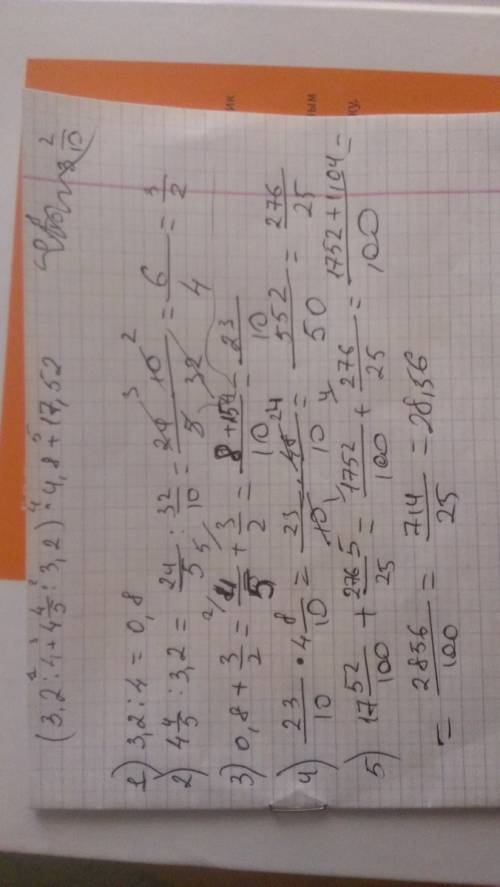 (3,2 : 4 + 4 4/5 : 3,2) · 4,8 + 17,52
1) 3,2 : 4 = 0,8
2) 4 4/5 : 3,2 = 24/5 : 32/10 = 24 · 10/5 · 32 = 6/4 = 3/2
3) 0,8 + 3/2 = 4/5 + 3/2 = 8+15/10 = 23/10
4) 23/10 · 4 8/10 = 23/10 · 48/10 = 552/50 = 276/25
5) 17 52/100 + 276/25 = 1752/100 + 276/25 = 1752+1104/100 =
= 2856/100 = 714/25 = 28,56
ик
ым
ку.